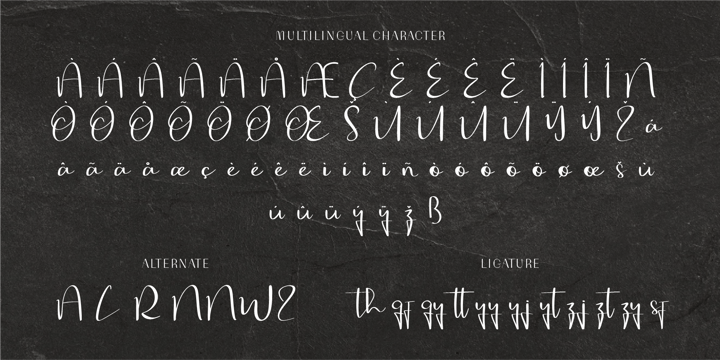 MULTILINGUAL CHARACTER
À Á Â Ã Ä Å Æ Ç È É Ê Ë Ì Í Î Ï Ñ
Ò Ó Ô Õ Ö Ø Œ Š Ù Ú Û Ü Ý Ÿ Ž á
â ã ä å æ ç è é ê ë ì í î ï ñ ò ó ô õ ö ø œ š ù
ú û ü ý ÿ ž ß
ALTERNATE
A C R N N W Z
LIGATURE
th gf gy tt yy yj yt zj zt zy sf